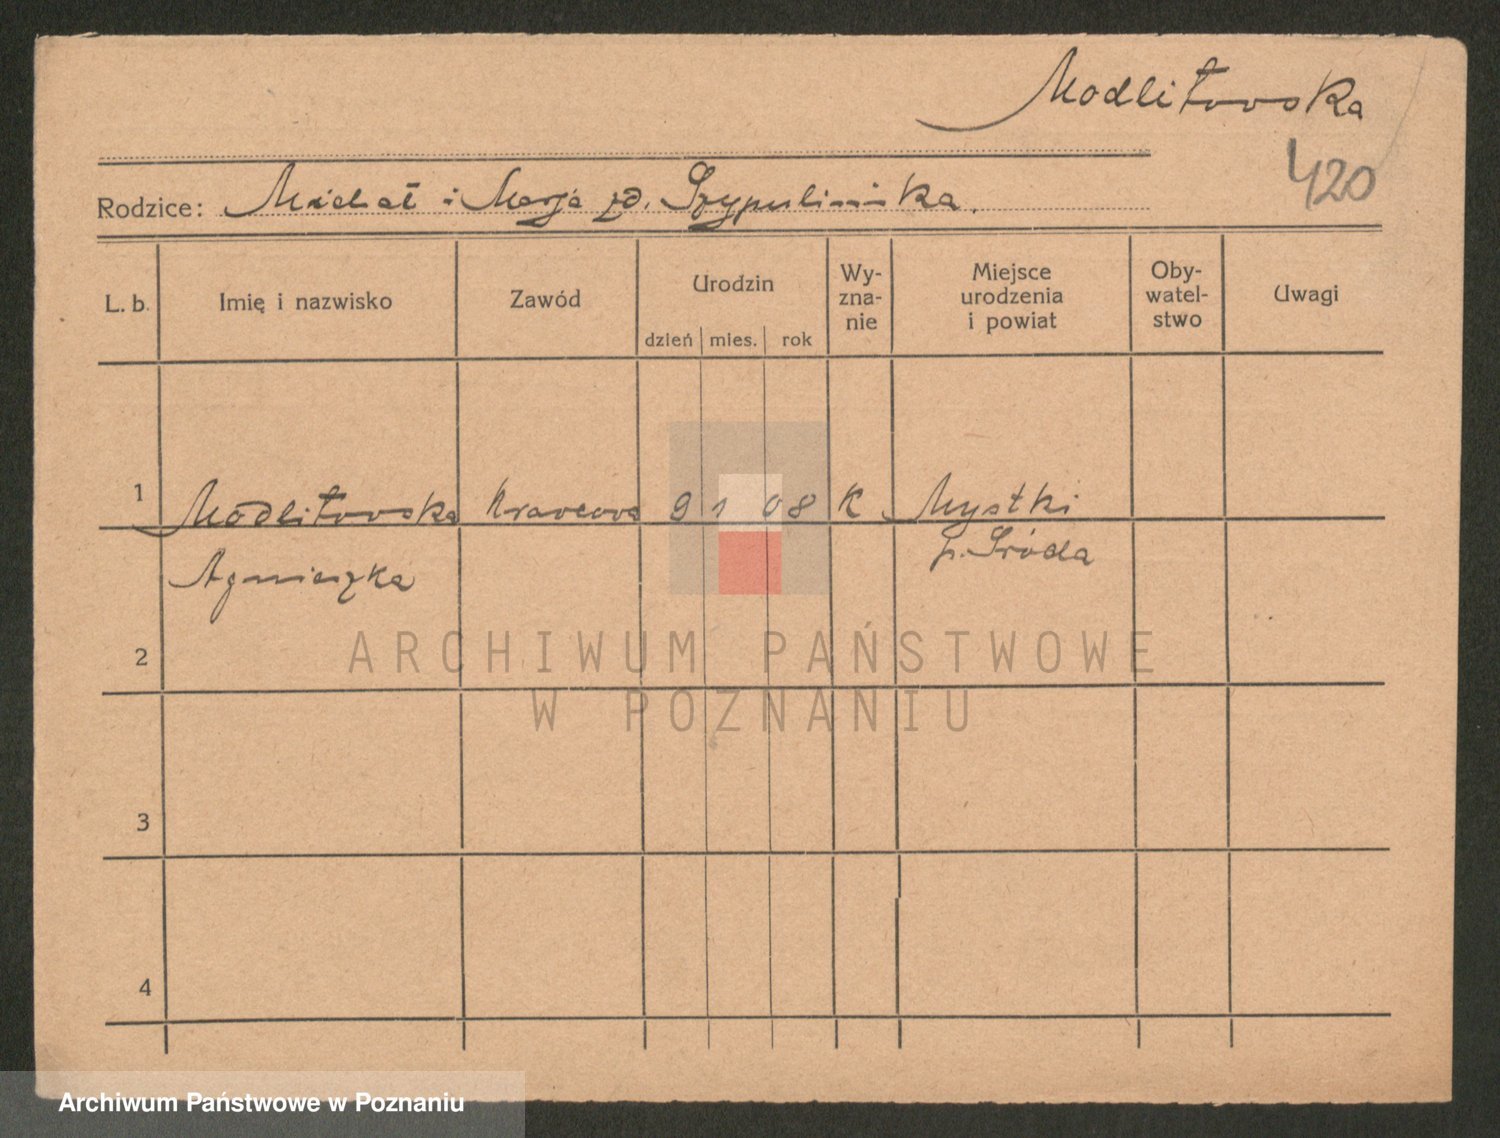 Modlitowska
420
Rodzice: Michał i Marja zd.
L. b. Imię i nazwisko Zawód Urodzin dzień mies. rok Wy-zna-nie Miejsce urodzenia i powiat Oby-watel-stwo Uwagi
1 Modlitowska Krawcowa 9 1 08 K Mystki
Agnieszka p. Środa
2
3
4
ARCHIWUM PAŃSTWOWE
W POZNANIU
Archiwum Państwowe w Poznaniu